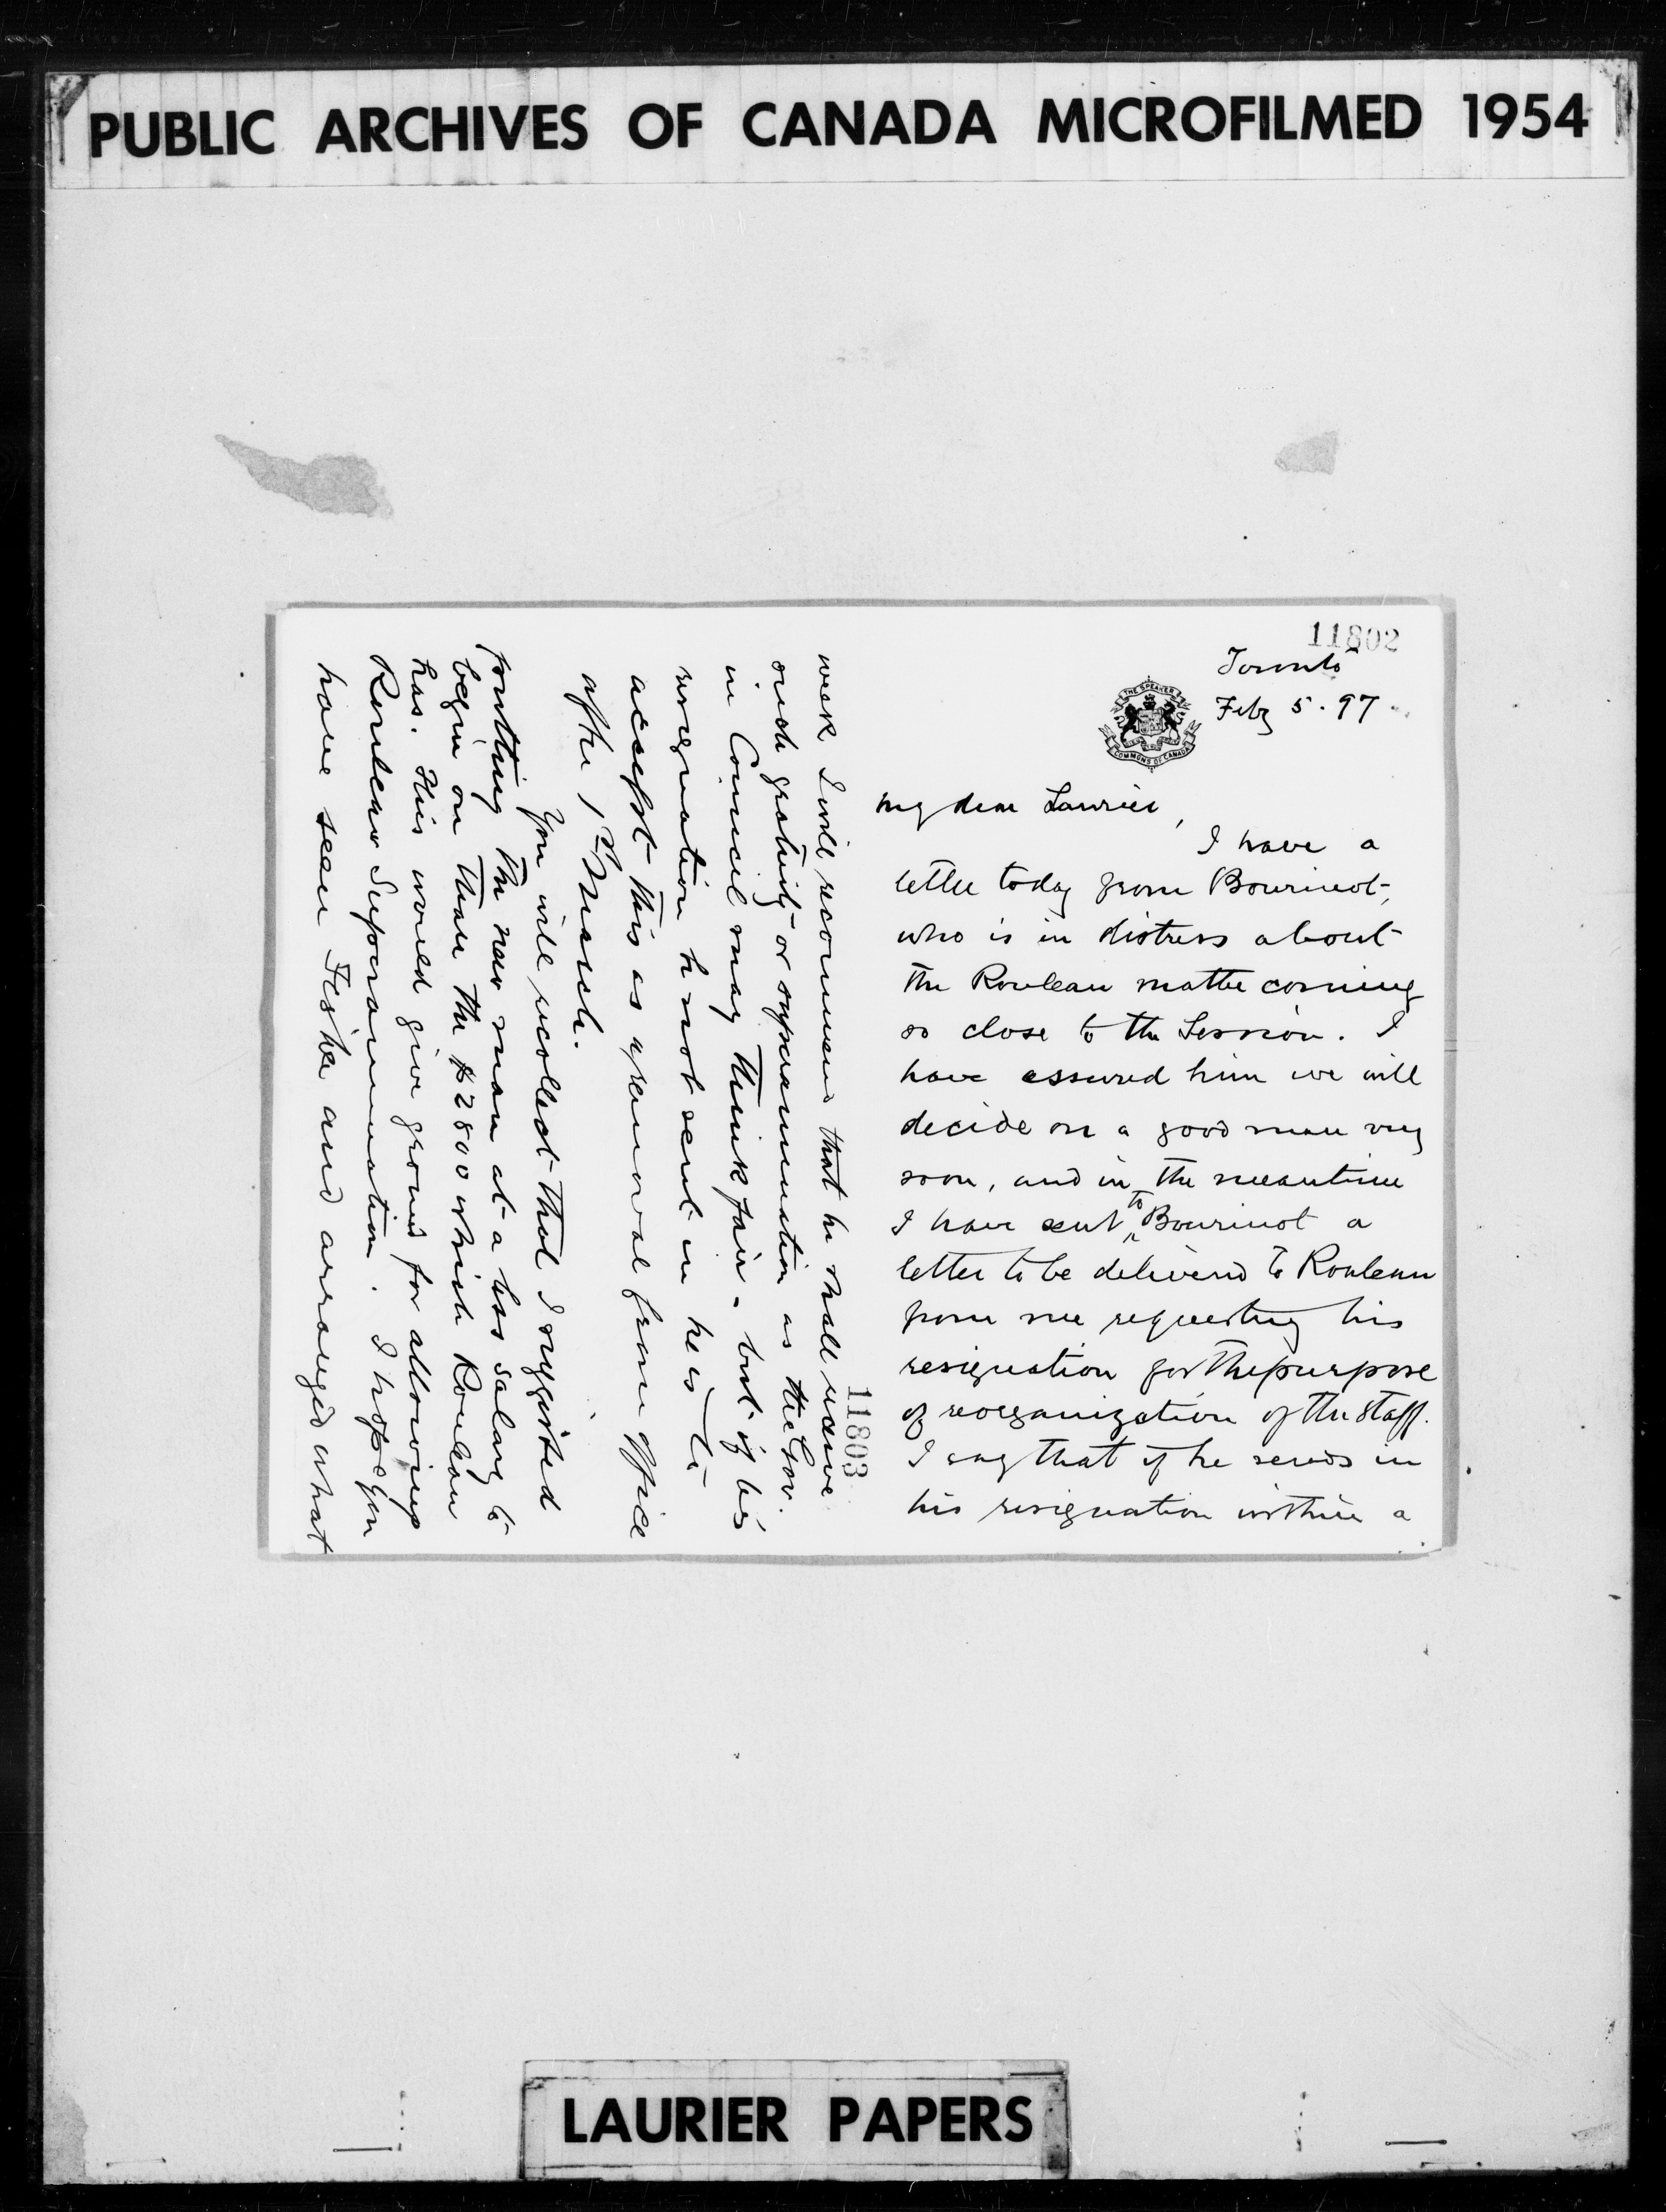 PUBLIC ARCHIVES OF CANADA MICROFILMED 1954
11802
Toronto
Feby 5. 97.
THE SPEAKER
COMMONS OF CANADA
My dear Laurier,
I have a
letter today from Bourinot,
who is in distress about
the Rouleau matter coming
so close to the Session. I
have assured him we will
decide on a good man very
soon, and in the meantime
I have sent to Bourinot a
letter to be delivered to Rouleau
from me requesting his
resignation for the purpose
of reorganization of the staff.
I say that if he sends in
his resignation within a
11803
week I will recommend that he shall receive
such gratuity or superannuation as the Gov.
in Council may think fair. but if his
resignation is not sent in he is to
accept this as a removal from office
after 1st March.
You will recollect that I suggested
putting the new man at a less salary to
begin on than the $2800 which Rouleau
has. This would give ground for allowing
Rouleau Superannuation. I hope you
have seen Fisher and arranged what
LAURIER PAPERS